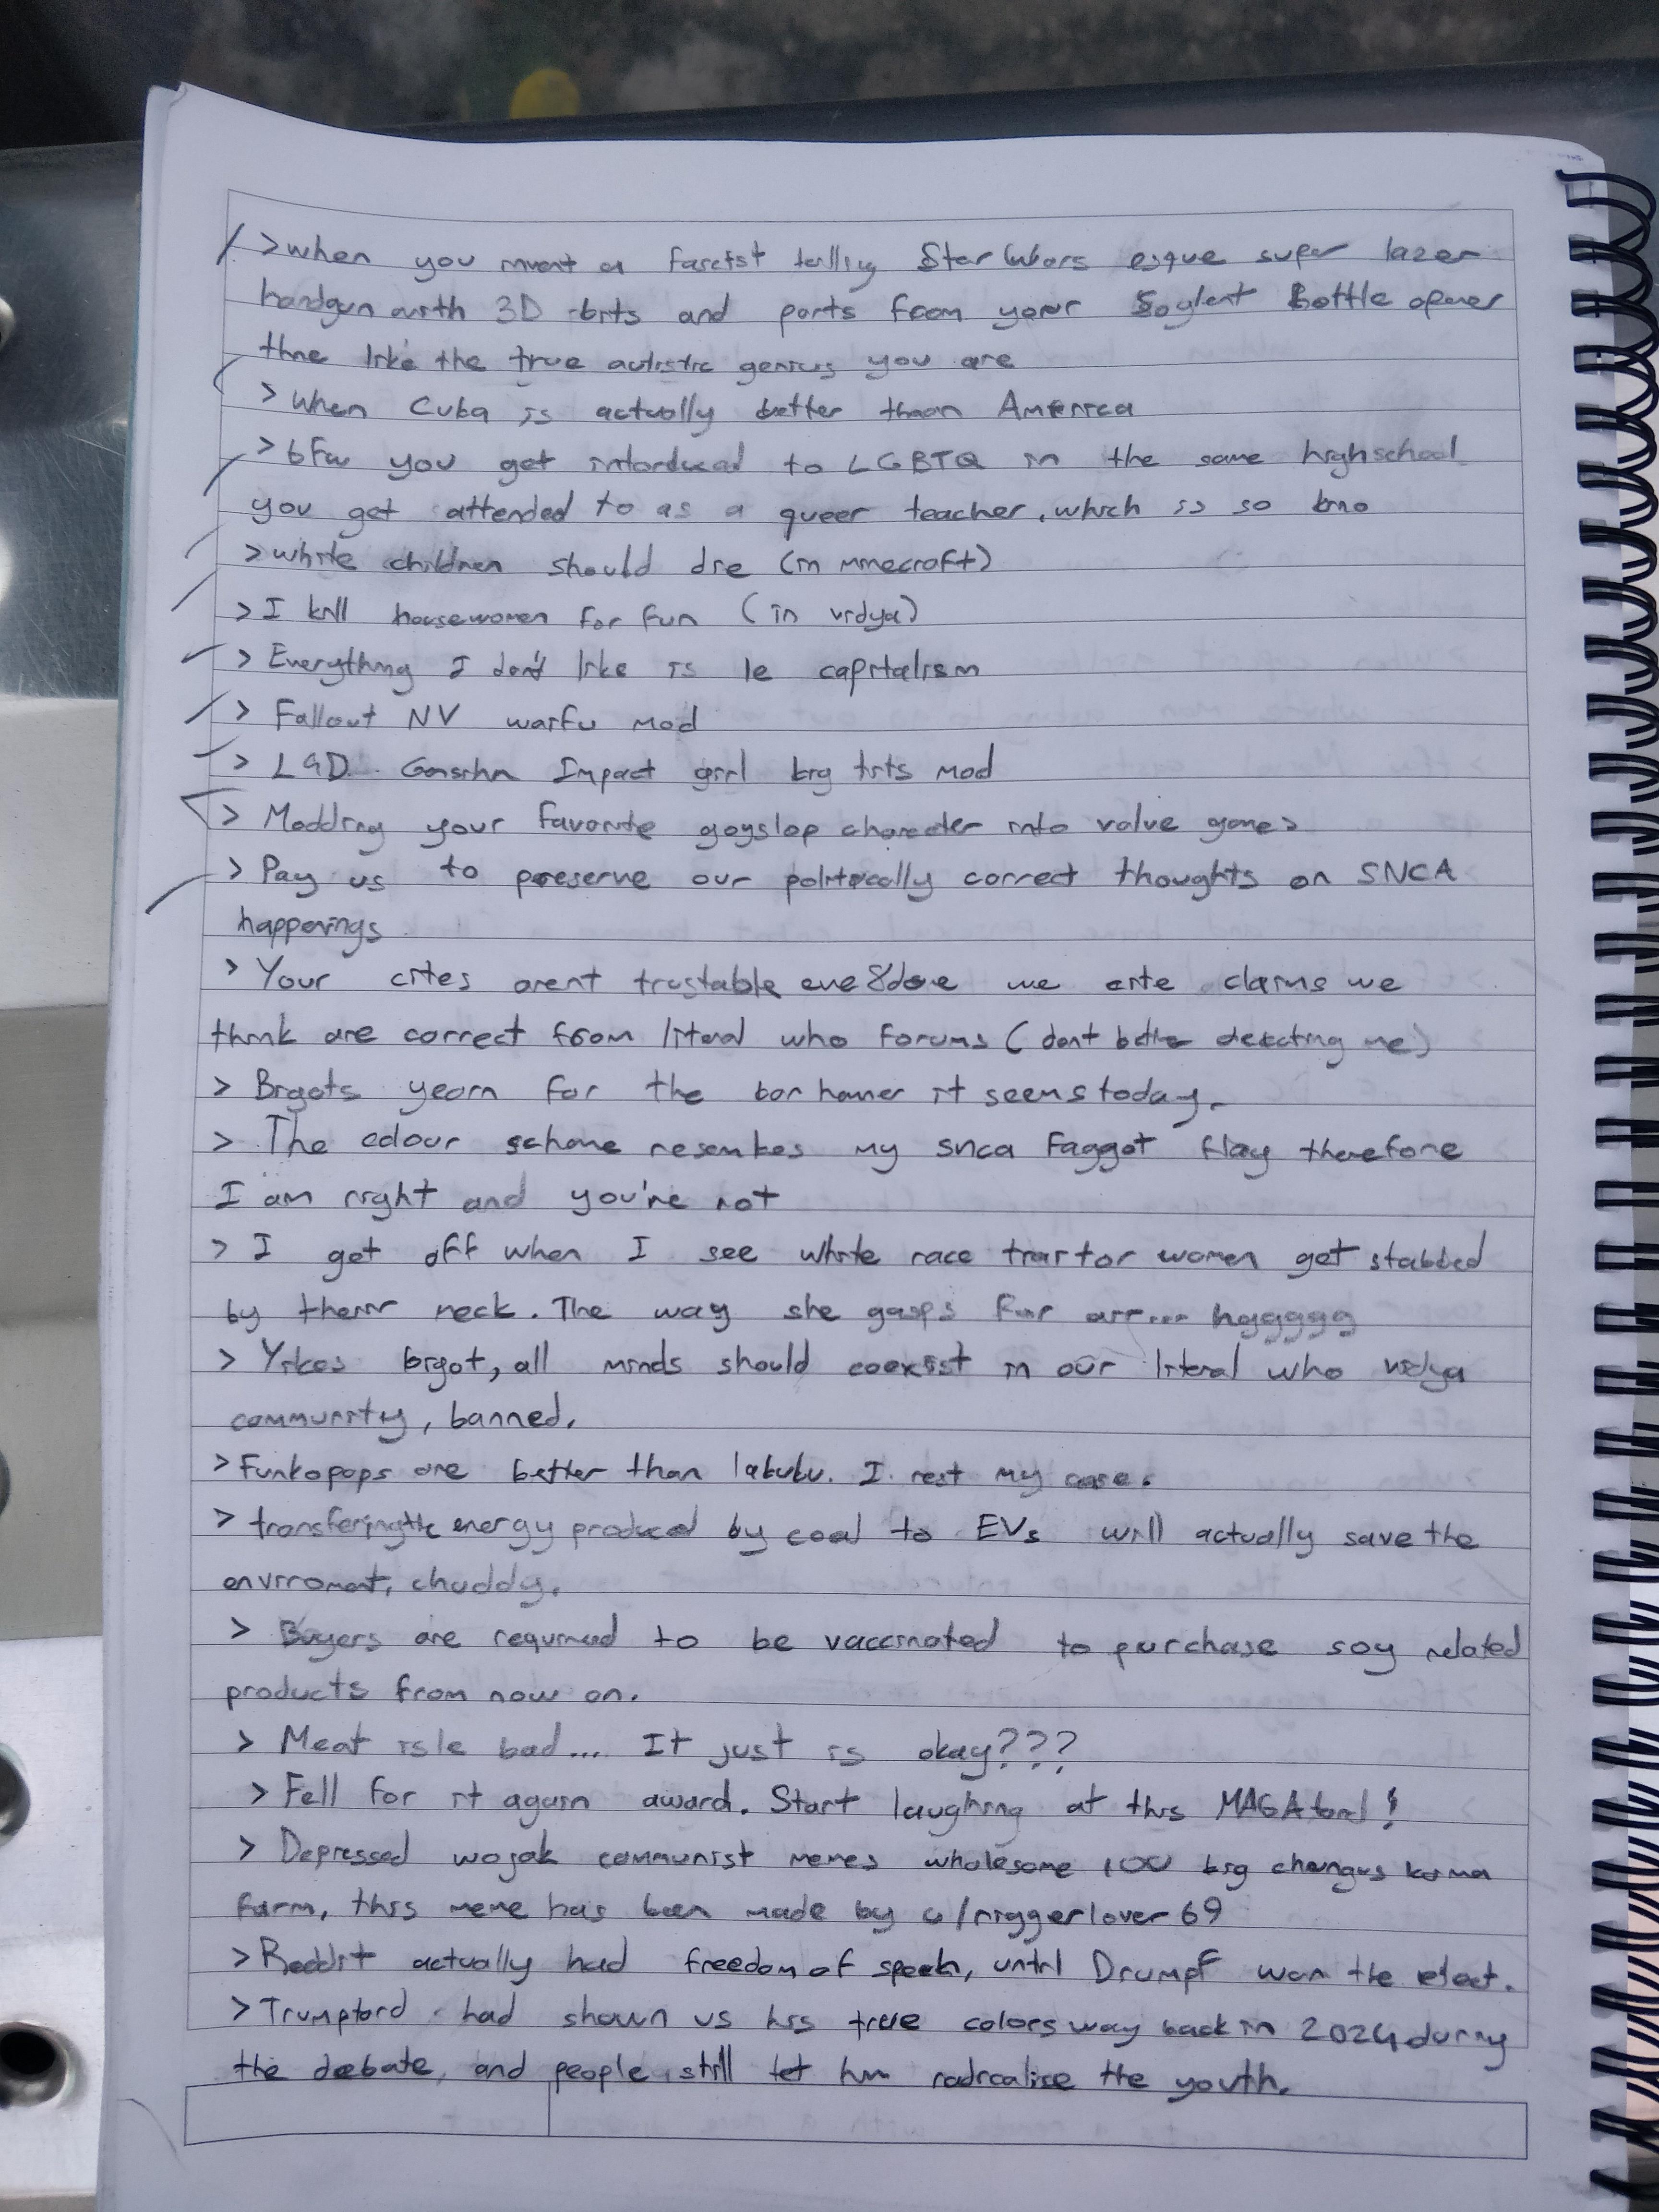 >when you invent a facist killing Star Wars esque super lazer
handgun with 3D bits and parts from your Soylent Bottle opener
like the true autistic genius you are
> When Cuba is actually better than America
> tfw you get intorduced to LGBTQ in the same highschool
you get attended to as a queer teacher, which is so kino
>white children should die (in minecraft)
>I kill housewomen for fun (in vidya)
> Everything I don't like is le capitalism
> Fallout NV waifu mod
> L4D Genshin Impact girl big tits mod
> Modding your favorite goyslop character into valve games
> Pay us to preserve our politically correct thoughts on SNCA
happenings
> Your cites arent trustable we cite claims we
think are correct from literal who forums (dont bother me)
> Bigots yearn for the ban hammer it seems today.
> The colour scheme resembles my snca Faggot flag therefore
I am right and you're not
> I get off when I see white race traitor women get stabbed
by their neck. The way she gasps for air... hggggg
> Yikes bigot, all minds should coexist in our literal who vidya
community, banned.
>Funkopops are better than labubu. I rest my case.
> transfering the energy produced by coal to EVs will actually save the
enviroment, chuddy.
> Buyers are required to be vaccinated to purchase soy related
products from now on.
> Meat is le bad... It just is okay???
> Fell for it again award. Start laughing at this MAGAtard!
> Depressed wojak communist memes wholesome 100 big chungus karma
farm, this meme has been made by u/niggerlover69
>Reddit actually had freedom of speech, until Drumpf won the elect.
>Trumptard had shown us his true colors way back in 2024 during
the debate, and people still let him radicalise the youth.